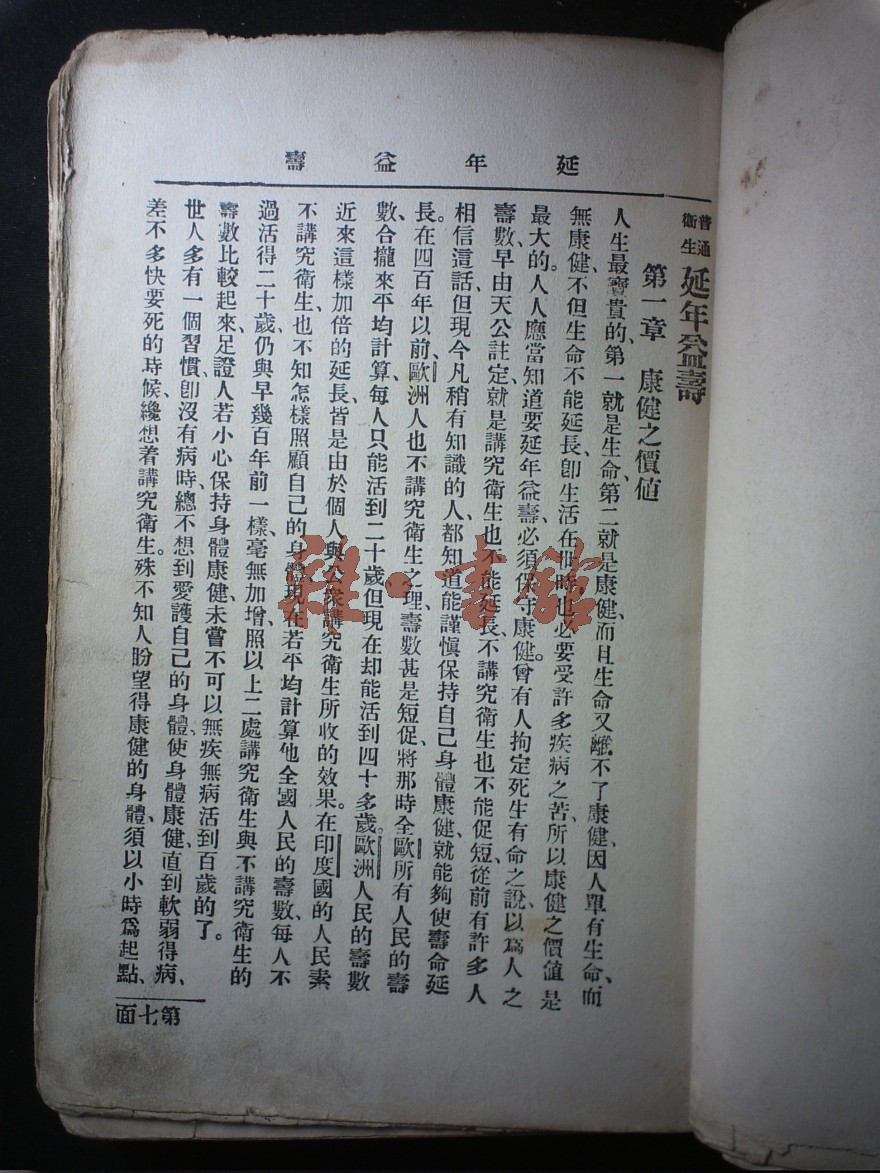 延年益壽
普通衛生 延年益壽
第一章 康健之價值
人生最寶貴的、第一就是生命、第二就是康健、而且生命又離不了康健、因人單有生命、而
無康健、不但生命不能延長、卽生活在世時、也必要受許多疾病之苦、所以康健之價值是
最大的、人人應當知道要延年益壽、必須保守康健。曾有人拘定死生有命之說、以爲人之
壽數、早由天公註定、就是講究衛生也不能延長、不講究衛生也不能促短、從前有許多人
相信這話、但現今凡稍有知識的人、都知道能謹愼保持自己身體康健、就能夠使壽命延
長。在四百年以前、歐洲人也不講究衛生之理、壽數甚是短促、將那時全歐所有人民的壽
數、合攏來平均計算、每人只能活到二十歲、但現在却能活到四十多歲。歐洲人民的壽數
近來這樣加倍的延長、皆是由於個人與公衆講究衛生所收的效果。在印度國的人民素
不講究衛生、也不知怎樣照顧自己的身體、現在若平均計算他全國人民的壽數、每人不
過活得二十歲、仍與早幾百年前一樣、毫無加增、照以上二處講究衛生與不講究衛生的
壽數比較起來、足證人若小心保持身體康健、未嘗不可以無疾無病活到百歲的了。
世人多有一個習慣、卽沒有病時、總不想到愛護自己的身體、使身體康健、直到軟弱得病、
差不多快要死的時候、纔想着講究衛生。殊不知人盼望得康健的身體、須以小時爲起點、
第七面
雜·書館